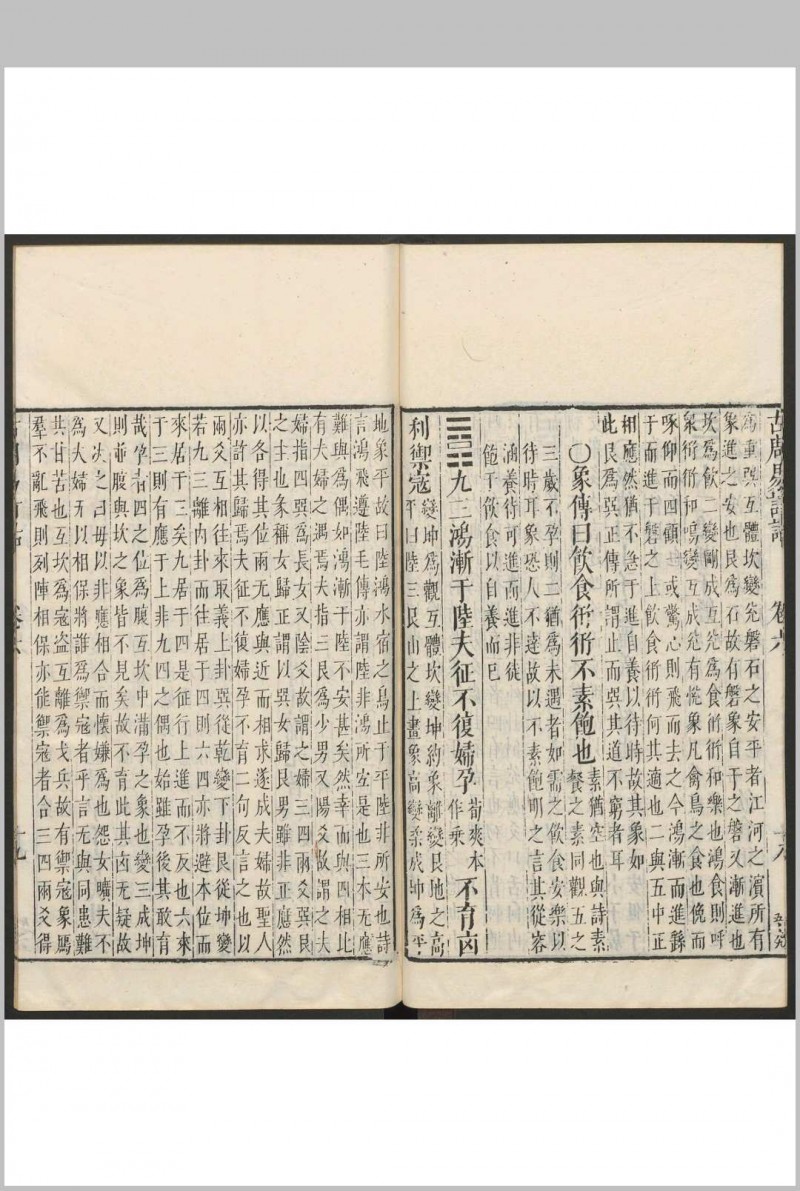 古周易訂詁 卷六 十八
爲重巽互體坎變兊磐石之安平者江河之濱所有
象進之安也艮爲石故有磐象自于之磐又漸進也
坎爲飲二變剛成互兊爲食衎衎和樂也鴻食則呼
衆衎衎和鳴變互成兊有悅象凡禽鳥之食也俛而
啄仰而四顧一或驚心則飛而去之今鴻漸而進繇
于而進于磐之上飲食衎衎何其適也二與五中正
相應然猶不急于進自養以待時故其象如
此艮爲巽正傳所謂止而巽其道不窮者耳
〇象傳曰飲食衎衎不素飽也 素猶空也與詩素
餐之素同觀五之
三歲不孕則二猶爲未遇者如需之飲食安樂以
待時耳象恐人不達故以不素飽明之言其從容
涵養待可進而進非徒
飽于飲食以自養而已
九三鴻漸于陸夫征不復婦孕 荀爽本
作乗 不育㐫
利禦寇 變坤爲觀互體坎變坤約象離變艮地之高
平曰陸三艮山之上畫象高變柔成坤爲平
地象平故曰陸鴻水宿之鳥止于平陸非所安也詩
言鴻飛遵陸毛傳亦謂陸非鴻所宜是也三本无應
難與爲偶如鴻漸于陸不安甚矣然幸而與四相比
有夫婦之遇焉夫指三艮爲少男又陽爻故謂之夫
婦指四巽爲長女又陰爻故謂之婦三四兩爻
之主也彖稱女歸正謂以巽女歸艮男雖非正應然
以各得其位兩无應與而近而相求遂成夫婦故聖人
亦許其歸焉夫征不復婦孕不育二句反言之也以
兩爻互相往來取義上卦巽從乾變下卦艮從坤變
若九三離内卦而往居于四則六四亦將避本位而
來居于三矣九居于四是征行上進而不反也六來
于三則有應于上非九四之偶也始雖孕後其敢育
哉孕者四之位爲腹互坎中滿孕之象也變三成坤
則並腹與坎之象皆不見矣故不育此其㐫无疑故
又决之曰毋以非應相合而懷嫌爲也怨女曠夫不
爲夫婦无以相保將誰爲禦寇者乎言无與同患難
共甘苦也互坎爲寇盗互離爲戈兵故有禦寇象鴈
羣不亂飛則列陣相保亦能禦寇者合三四兩爻得
卷六 十九